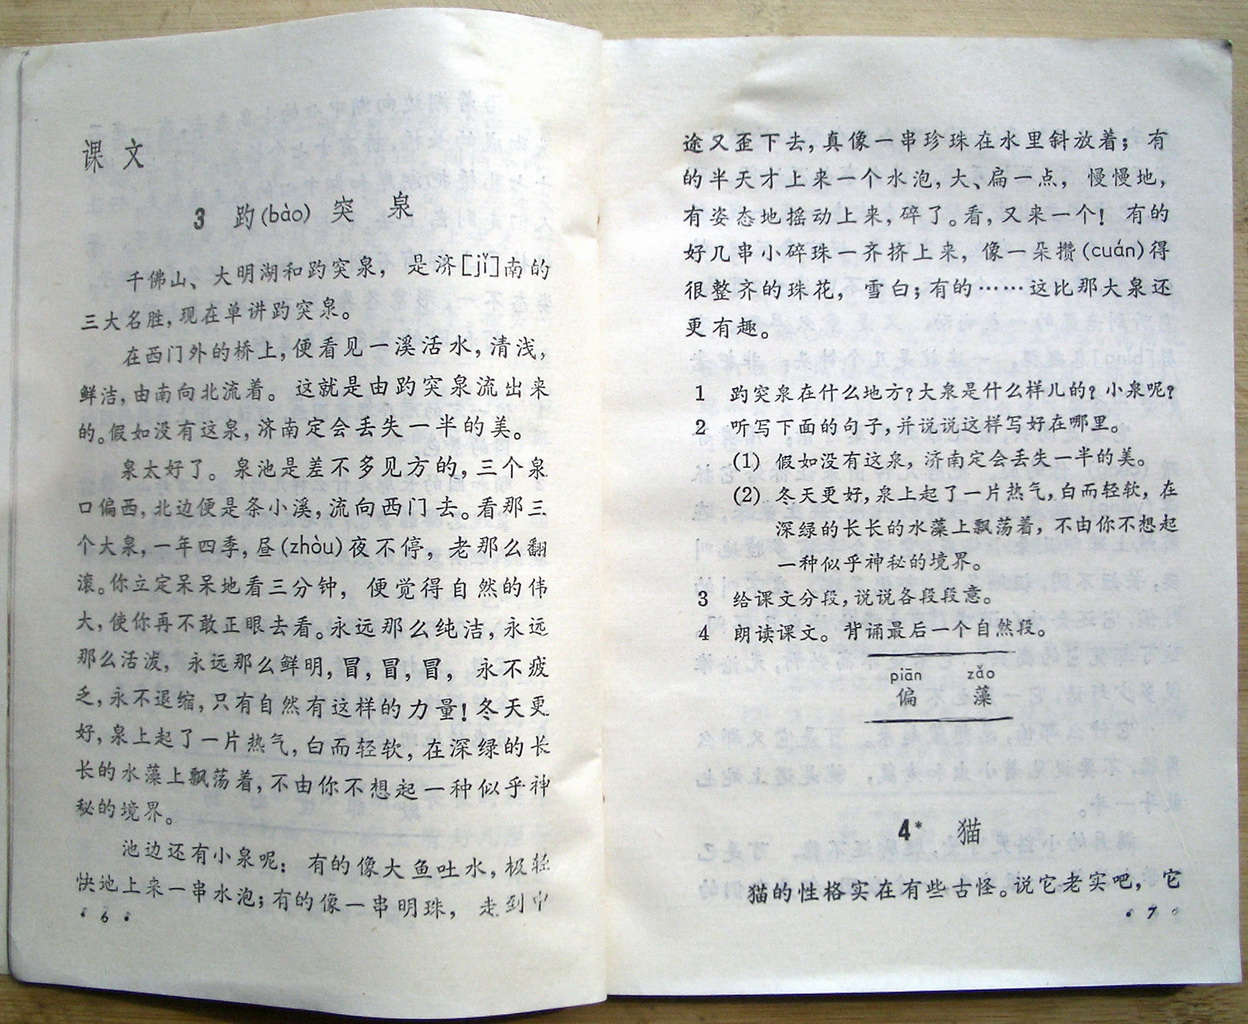 课文
3 趵(bào) 突 泉
千佛山、大明湖和趵突泉，是济[jǐ]南的
三大名胜，现在单讲趵突泉。
在西门外的桥上，便看见一溪活水，清浅，
鲜洁，由南向北流着。这就是由趵突泉流出来
的。假如没有这泉，济南定会丢失一半的美。
泉太好了。泉池是差不多见方的，三个泉
口偏西，北边便是条小溪，流向西门去。看那三
个大泉，一年四季，昼(zhòu)夜不停，老那么翻
滚。你立定呆呆地看三分钟，便觉得自然的伟
大，使你再不敢正眼去看。永远那么纯洁，永远
那么活泼，永远那么鲜明，冒，冒，冒，永不疲
乏，永不退缩，只有自然有这样的力量！冬天更
好，泉上起了一片热气，白而轻软，在深绿的长
长的水藻上飘荡着，不由你不想起一种似乎神
秘的境界。
池边还有小泉呢：有的像大鱼吐水，极轻
快地上来一串水泡；有的像一串明珠，走到中
·6·
途又歪下去，真像一串珍珠在水里斜放着；有
的半天才上来一个水泡，大、扁一点，慢慢地，
有姿态地摇动上来，碎了。看，又来一个！有的
好几串小碎珠一齐挤上来，像一朵攒(cuán)得
很整齐的珠花，雪白；有的……这比那大泉还
更有趣。
1 趵突泉在什么地方？大泉是什么样儿的？小泉呢？
2 听写下面的句子，并说说这样写好在哪里。
(1) 假如没有这泉，济南定会丢失一半的美。
(2) 冬天更好，泉上起了一片热气，白而轻软，在
深绿的长长的水藻上飘荡着，不由你不想起
一种似乎神秘的境界。
3 给课文分段，说说各段段意。
4 朗读课文。背诵最后一个自然段。
piān zǎo
偏 藻
4* 猫
猫的性格实在有些古怪。说它老实吧，它
·7·